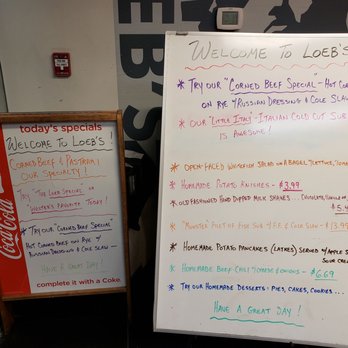 today's specials
Welcome To Loeb's!
Corned Beef & Pastrami
Our Specialty!
Try "The Loeb Special" or
Today!
Try Our "Corned Beef Special"
Hot Corned Beef on Rye w/
Russian Dressing & Cole Slaw
Have A Great Day!
complete it with a Coke.
Coca-Cola
B'S
Welcome To Loeb's!
* Try our "Corned Beef Special" - Hot Cor
on Rye w/Russian Dressing & Cole Slaw
* Our "Little Italy" - Italian Cold Cut Sub
is Awesome!
* Open-Faced Whitefish Salad on a Bagel w/Lettuce, Toma
* Homemade Potato Knishes - $3.99
* Old Fashioned Hand Dipped Milk Shakes... Chocolate, Vanilla
$5.
* "Monster" Filet of Fish Sub w/ F.F. & Cole Slaw - $13.99
* Homemade Potato Pancakes (Latkes) Served w/Apple S
Sour Cre
* Homemade Beef Chili w/Cheese & Onions - $6.69
* Try Our Homemade Desserts - Pies, Cakes, Cookies...
Have A Great Day!